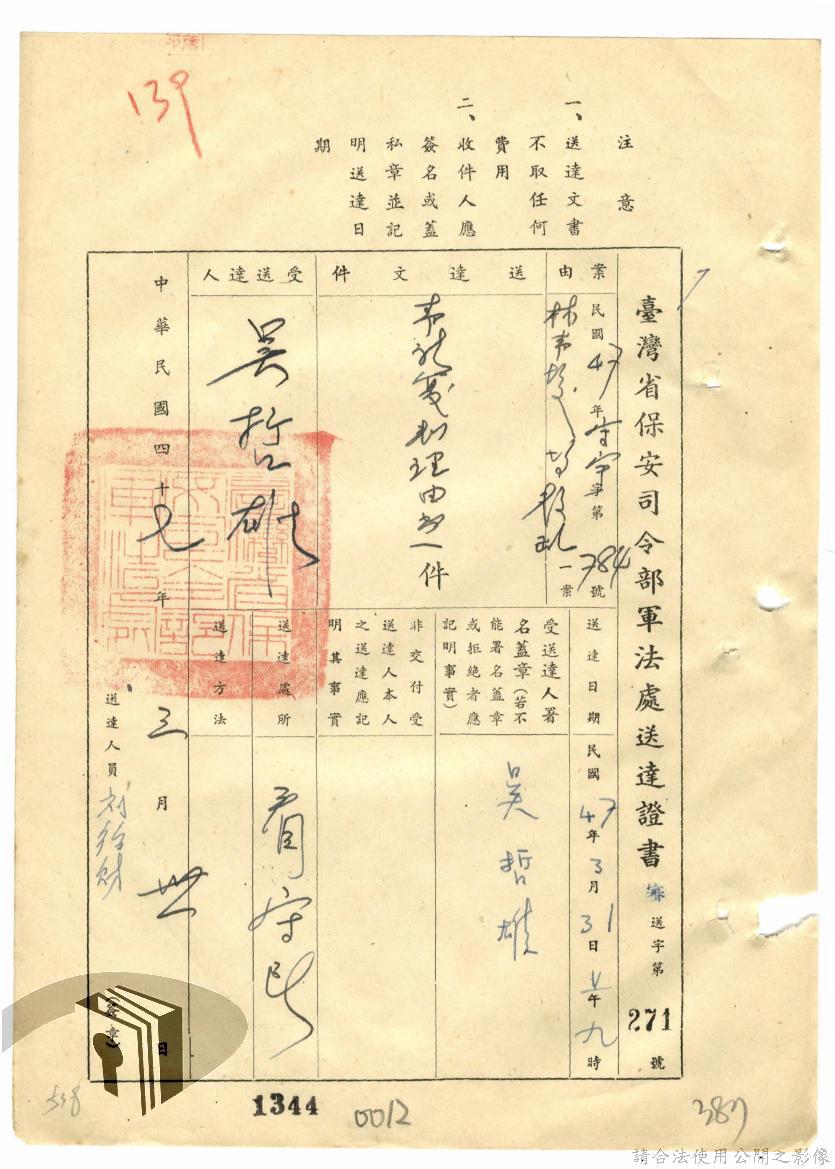 139
注意
一、送達文書
不取任何
費用
二、收件人應
簽名或蓋
私章並記
明送達日
期
臺灣省保安司令部軍法處送達證書
審
送字第
271
號
案由
民國47年審字第784號
一案
送達文件
理由書一件
受送達人
吳哲雄
送達日期
民國47年3月31日上午九時
受送達人署
名蓋章(若不
能署名蓋章
或拒絕者應
記明事實)
吳哲雄
非交付受
送達人本人
之送達應記
明其事實
送達處所
看守所
送達方法
中華民國四十七年三月卅一日
送達人員
(簽章)
538
1344
0012
387
請合法使用公開之影像